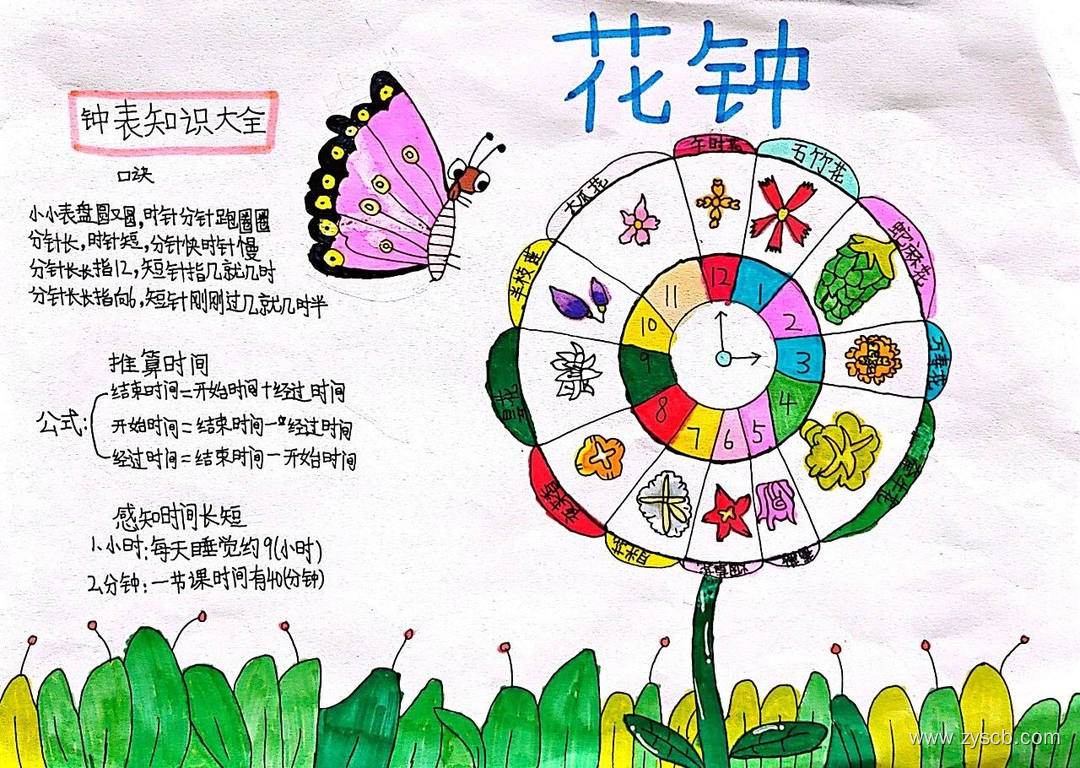 花钟
钟表知识大全
口诀
小小表盘圆又圆,时针分针跑圈圈
分针长,时针短,分针快时针慢
分针长长指12,短针指几就几时
分针长长指向6,短针刚刚过几就几时半
推算时间
公式:
结束时间=开始时间+经过时间
开始时间=结束时间-经过时间
经过时间=结束时间-开始时间
感知时间长短
1.小时:每天睡觉约9(小时)
2.分钟:一节课时间有40(分钟)
午时花
石竹花
蛇麻花
万寿花
牵牛花
烟草花
月光花
夜来香
昙花
半枝莲
木瓜花
12
1
2
3
4
5
6
7
8
9
10
11
www.zyscb.com